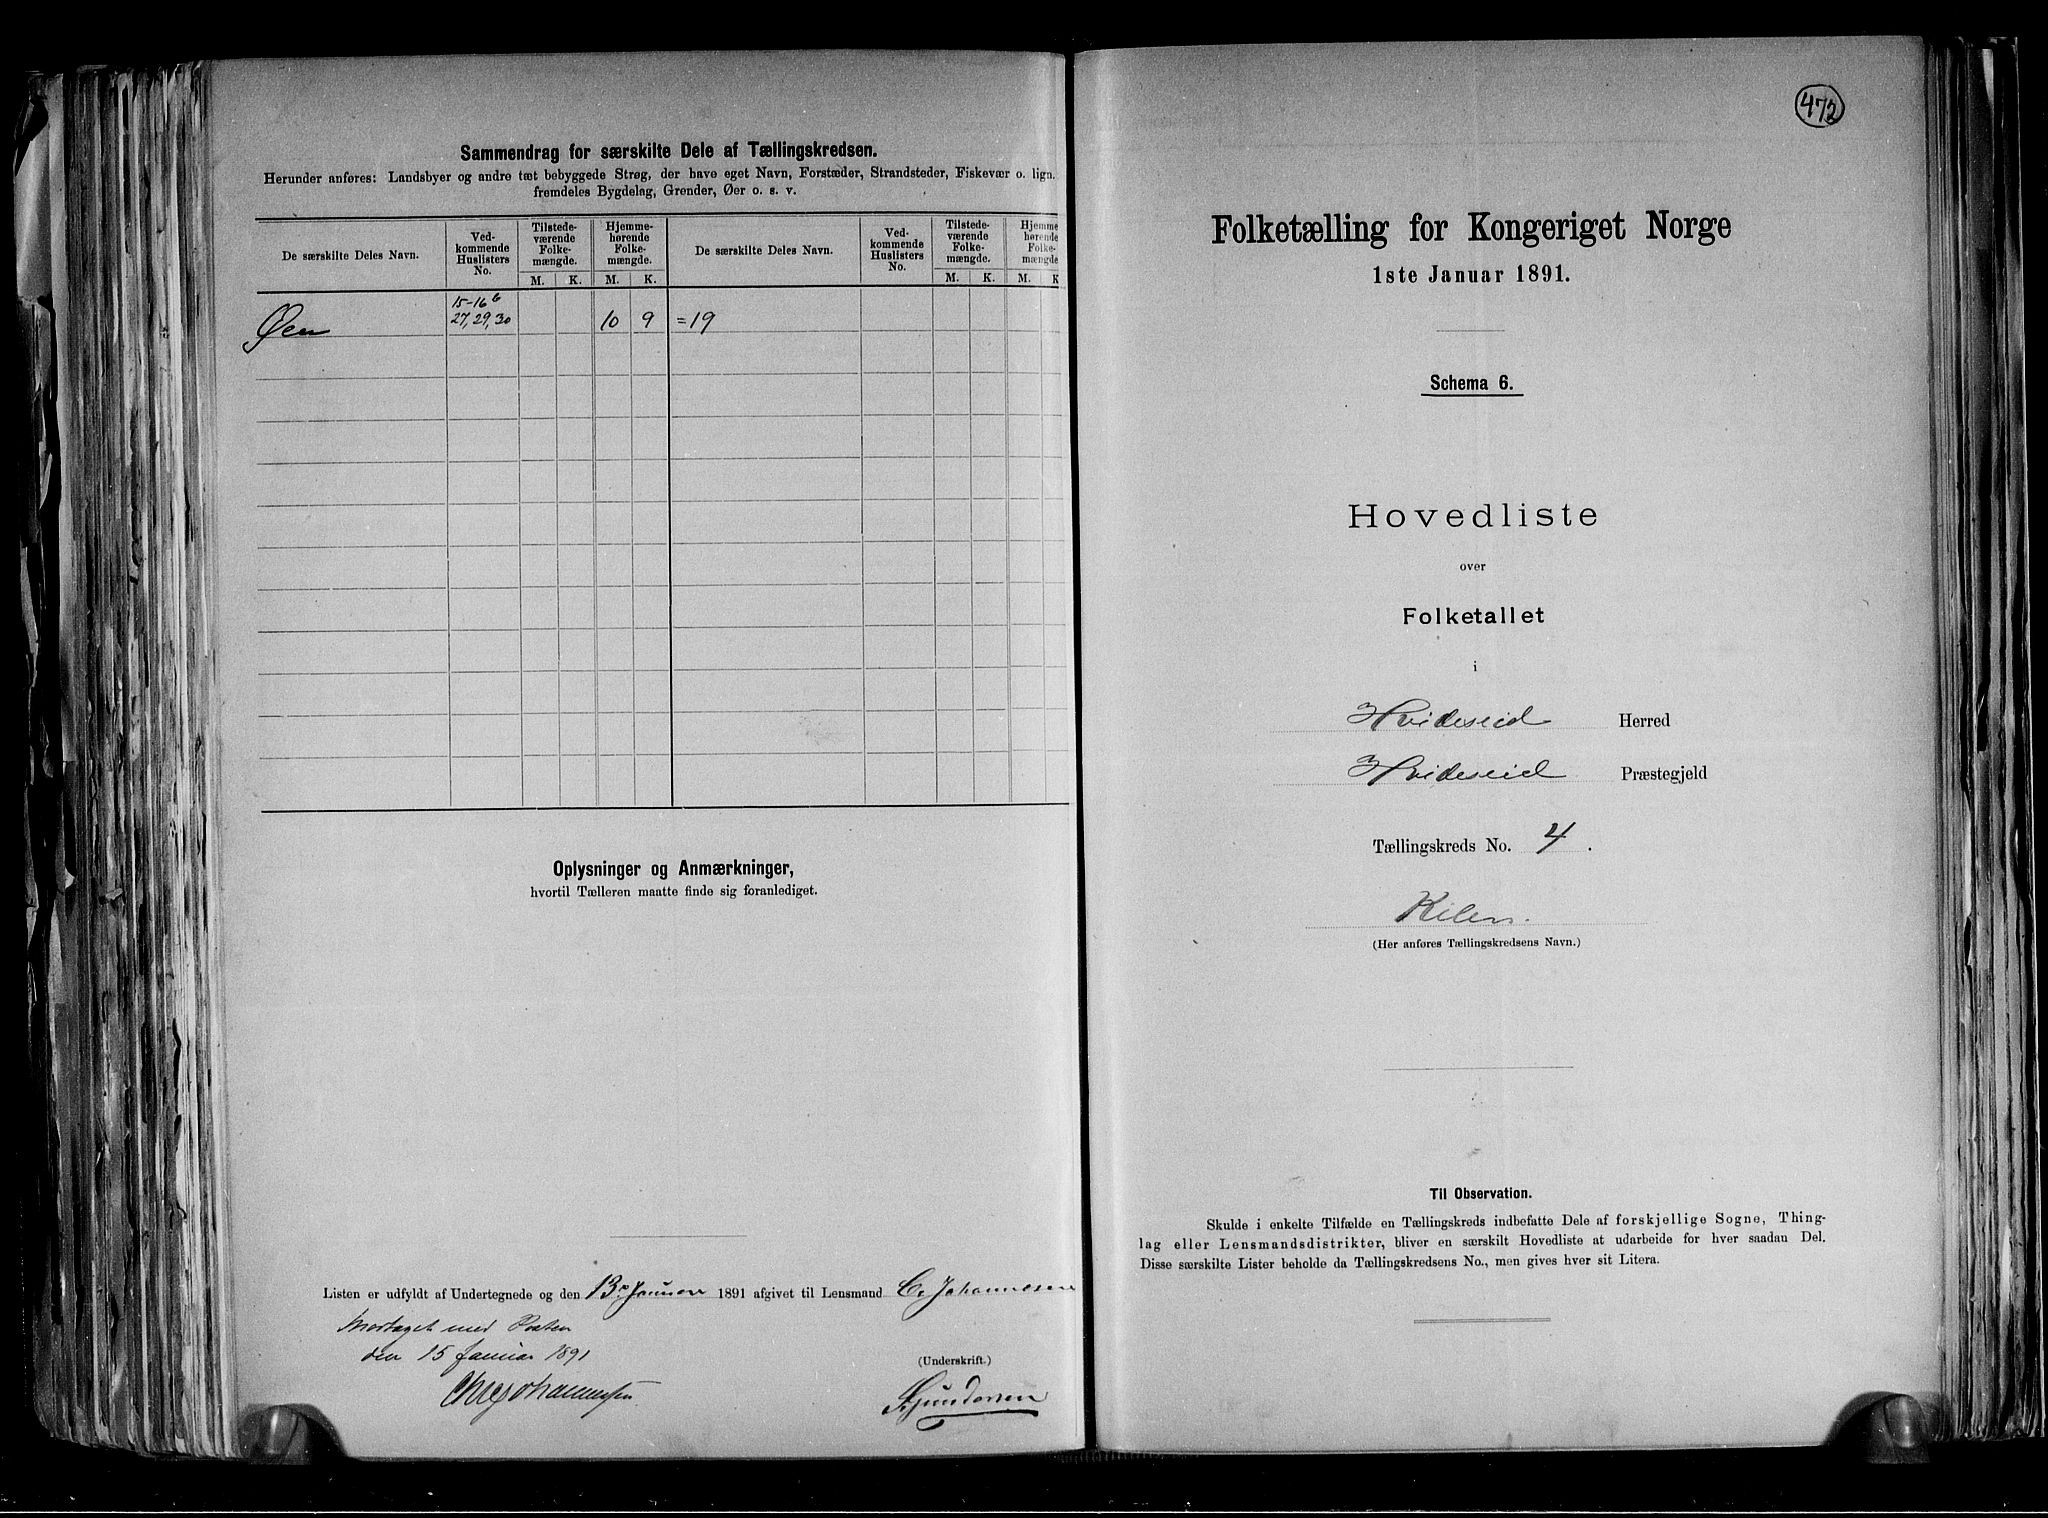 Sammendrag for særskilte Dele af Tællingskredsen.
Herunder anføres: Landsbyer og andre tæt bebyggede Strøg, der have eget Navn, Forstæder, Strandsteder, Fiskevær o. lign.
fremdeles Bygdelag, Grender, Øer o. s. v.
De særskilte Deles Navn.
Ved-
kommende
Huslisters
No.
Tilstede-
værende
Folke-
mængde.
M. K.
Hjemme-
hørende
Folke-
mængde.
M. K.
De særskilte Deles Navn.
Ved-
kommende
Huslisters
No.
Tilstede-
værende
Folke-
mængde.
M. K.
Hjemme-
hørende
Folke-
mængde
M. K
15-16 b
Øen 27, 29, 30 10 9 = 19
Oplysninger og Anmærkninger,
hvortil Tælleren maatte finde sig foranlediget.
Listen er udfyldt af Undertegnede og den 13de Januar 1891 afgivet til Lensmand C. Johannesen
Modtaget med Posten
den 15 Januar 1891
(Underskrift.)
472
Folketælling for Kongeriget Norge
1ste Januar 1891.
Schema 6.
Hovedliste
over
Folketallet
i
Hvideseid Herred
Hvideseid Præstegjeld
Tællingskreds No. 4.
Kilen.
(Her anføres Tællingskredsens Navn.)
Til Observation.
Skulde i enkelte Tilfælde en Tællingskreds indbefatte Dele af forskjellige Sogne, Thing-
lag eller Lensmandsdistrikter, bliver en særskilt Hovedliste at udarbeide for hver saadan Del.
Disse særskilte Lister beholde da Tællingskredsens No., men gives hver sit Litera.